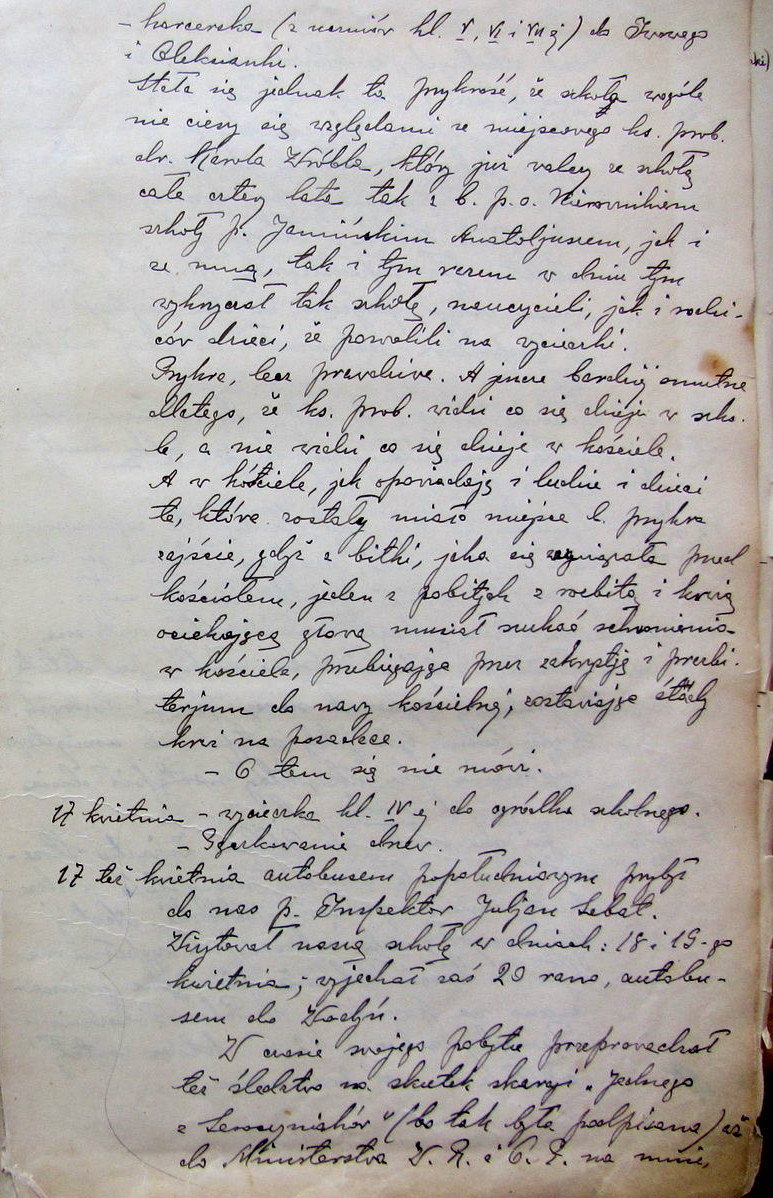 - harcerska (z uczniów kl. V, VI i VII ej) do Iwowego
i Oleksianki.
Stała się jednak ta przykrość, że szkoła wogóle
nie cieszy się względami ze miejscowego ks. prob.
dr. Karola Wróbla, który już walczy ze szkołą
całe cztery lata tak z b. p.o. Kierownikiem
szkoły p. Jamińskim Anatoljuszem, jak i
ze mną, tak i tym razem w dniu tym
wykrzyczał tak szkołę, nauczycieli, jak i rodzi-
ców dzieci, że pozwolili na wycieczki.
Przykre, lecz prawdziwe. A jeszcze bardziej smutne
dlatego, że ks. prob. widzi co się dzieje w szko-
le, a nie widzi co się dzieje w kościele.
A w kościele, jak opowiadają i ludzie i dzieci
te, które zostały miało miejsce b. przykre
zajście, gdyż z bitki, jaka się rozegrała przed
kościołem, jeden z pobitych z rozbitą i krwią
ociekającą głową musiał szukać schronienia
w kościele, przebiegając przez zakrystję i prezbi-
terjum do nawy kościelnej, zostawiając ślady
krwi na posadzce.
- O tem się nie mówi.
17 kwietnia - wycieczka kl. IV ej do ogródka szkolnego.
- Szarkowanie drzew.
17 też kwietnia autobusem popołudniowym przybył
do nas p. Inspektor Juljan Sebat.
Wizytował naszą szkołę w dniach: 18 i 19-go
kwietnia; wyjechał zaś 20 rano, autobu-
sem do Wodyń.
W czasie swojego pobytu przeprowadzał
też śledztwo na skutek skargi „Jednego
z Seroczyniaków" (bo tak była podpisana) aż
do Ministerstwa W. R. i O. P. na mnie,